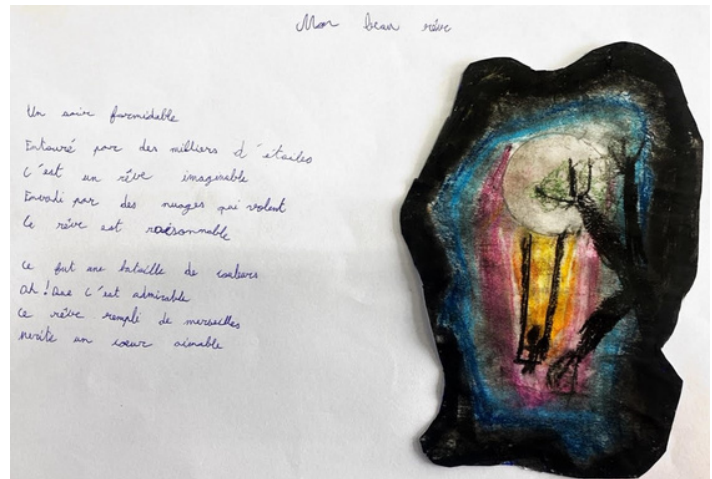 Mon beau rêve
Un soir formidable
Entouré par des milliers d'étoiles
C'est un rêve imaginable
Envahi par des nuages qui volent
Ce rêve est raisonnable
Ce fut une bataille de couleurs
Oh ! Que c'est admirable
Ce rêve rempli de merveilles
Mérite un cœur aimable